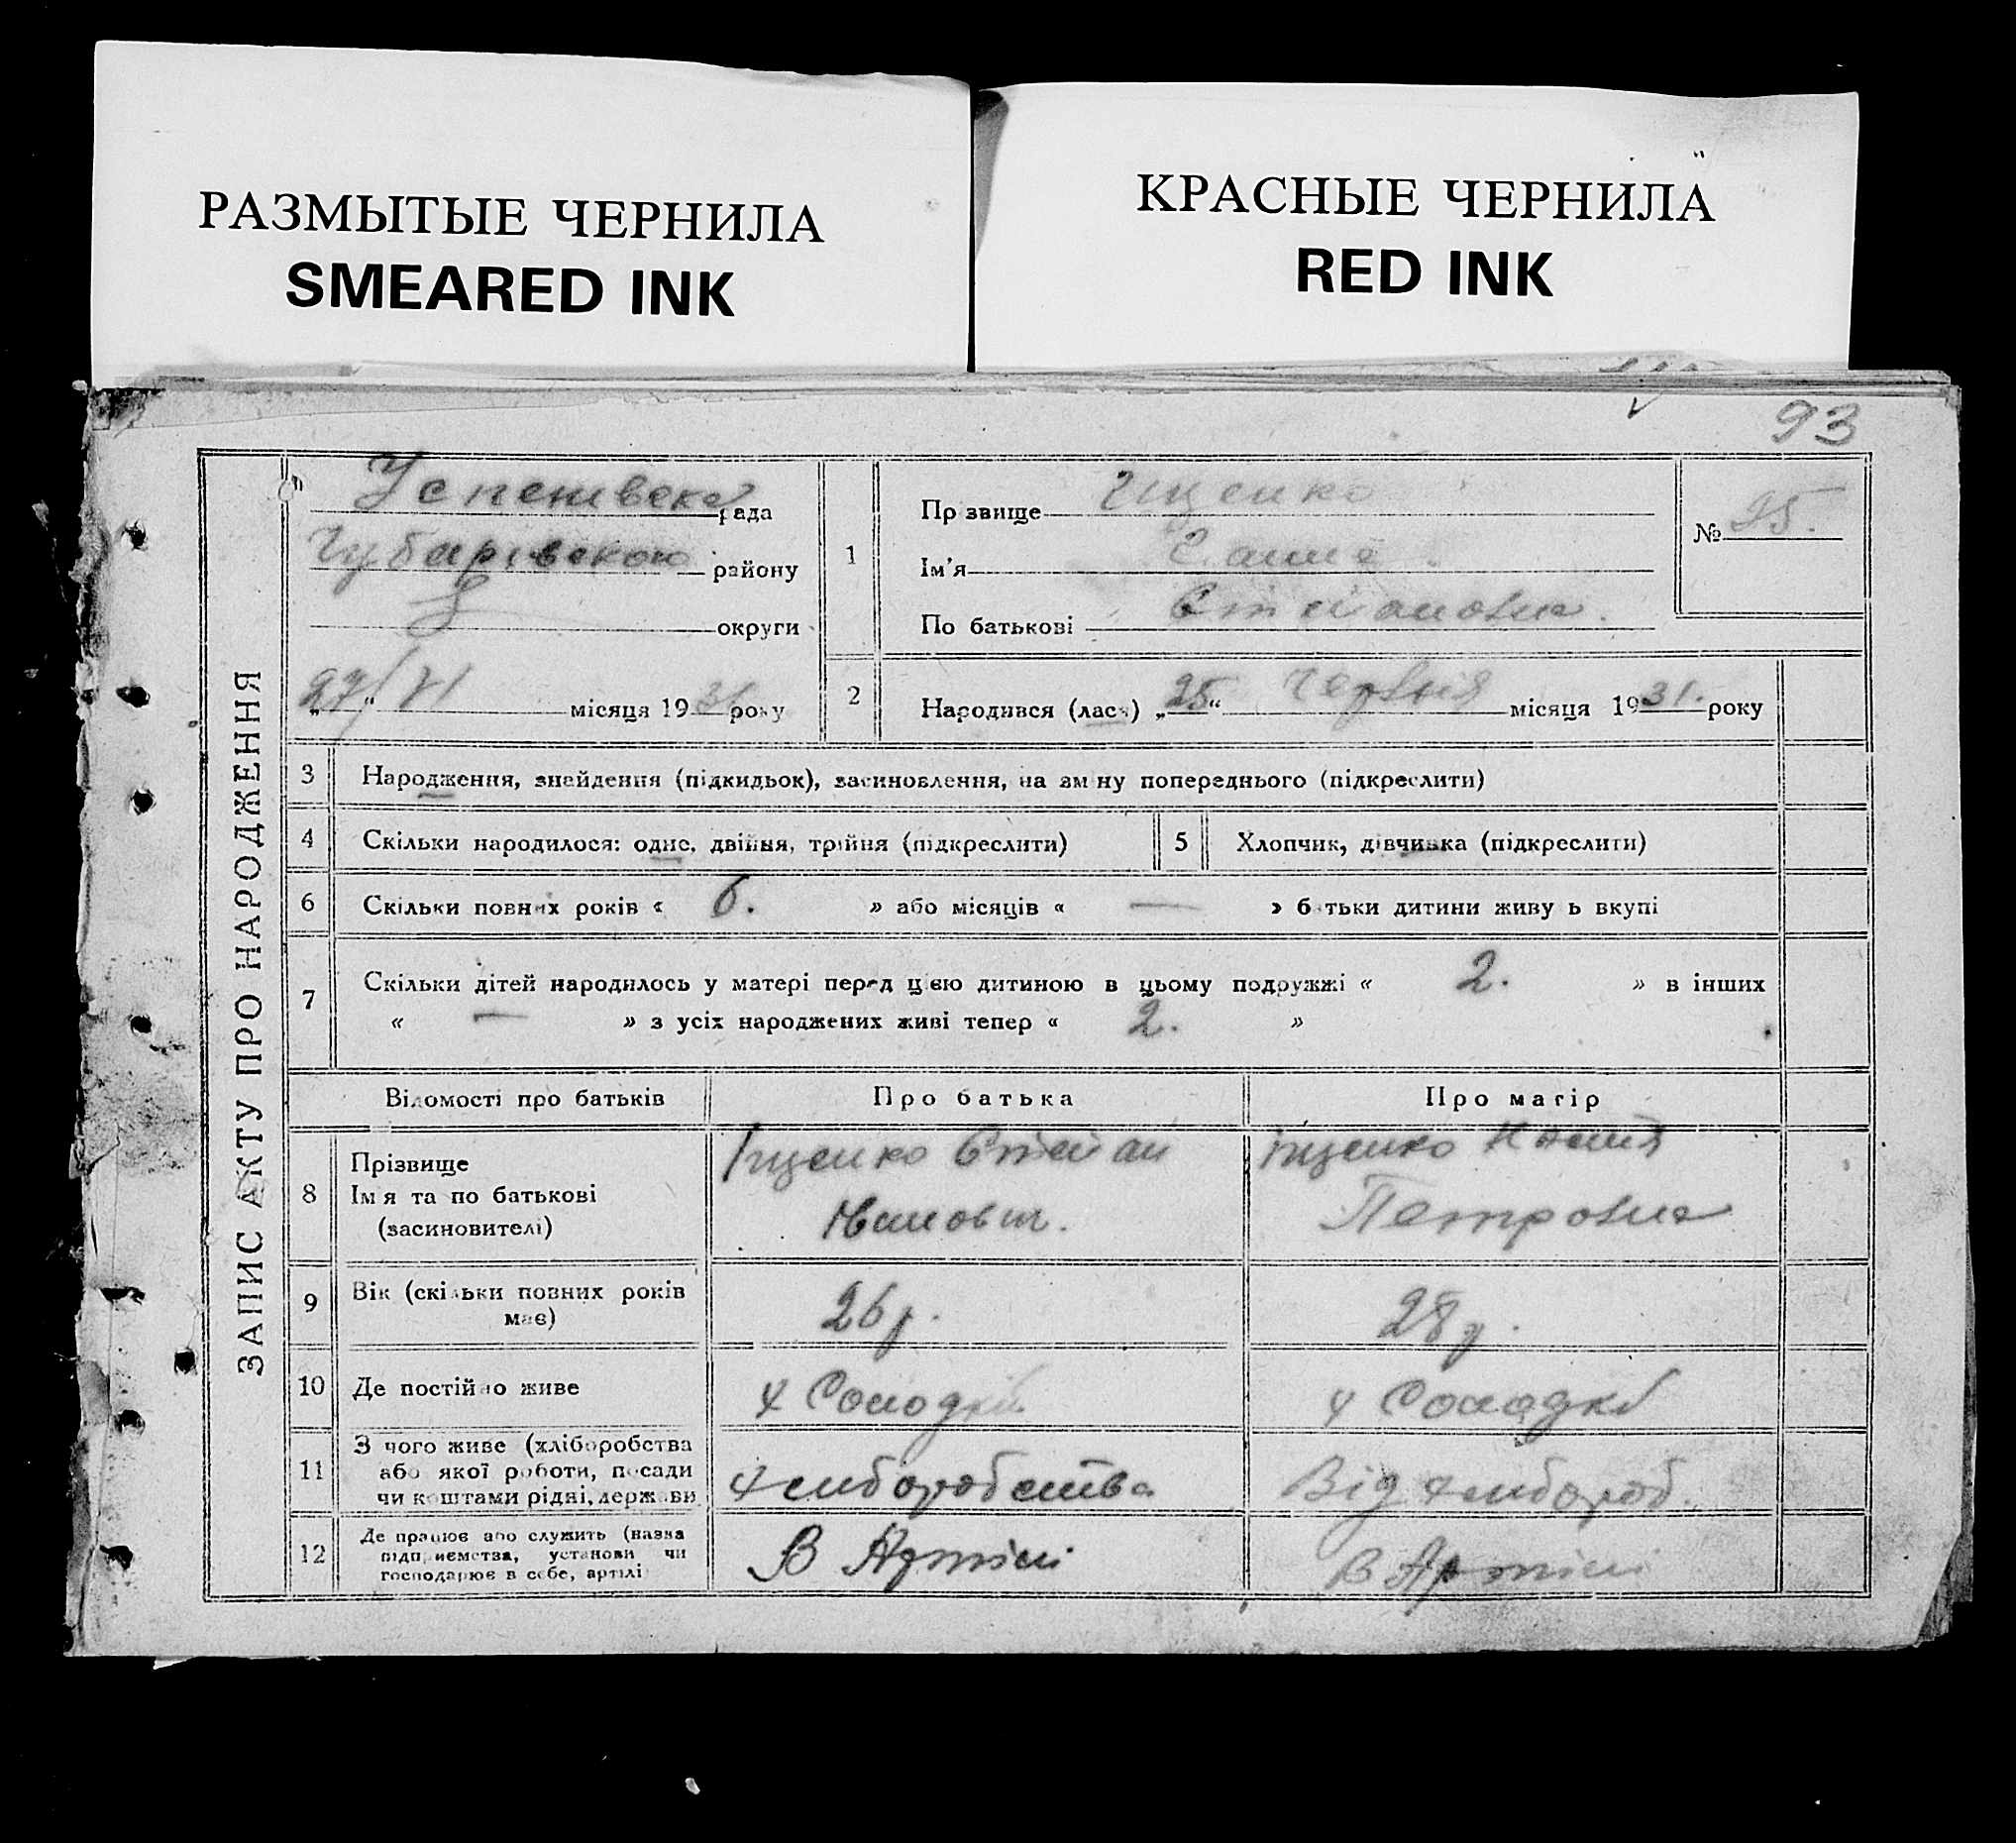 РАЗМЫТЫЕ ЧЕРНИЛА
SMEARED INK
КРАСНЫЕ ЧЕРНИЛА
RED INK
93
ЗАПИС АКТУ ПРО НАРОДЖЕННЯ
Успенівська рада
Чубарівського району
округи
„27“ VI місяця 1931 року
1
Прізвище Іщенко
Ім’я Ганна
По батькові Степановна.
№ 95.
2
Народився (лась) „25“ червня місяця 1931. року
3 Народження, знайдення (підкидьок), засиновлення, на зміну попереднього (підкреслити)
4 Скільки народилося: одне, двійня, трійня (підкреслити) 5 Хлопчик, дівчинка (підкреслити)
6 Скільки повних років « 6. » або місяців « — » батьки дитини живуть вкупі
7 Скільки дітей народилось у матері перед цією дитиною в цьому подружжі « 2. » в інших
« — » з усіх народжених живі тепер « 2. »
Відомості про батьків Про батька Про матір
8 Прізвище
Ім’я та по батькові
(засиновителі)
Іщенко Степан
Іванович.
Іщенко
Петровна
9 Вік (скільки повних років
має)
26 р. 28 р.
10 Де постійно живе
11 З чого живе (хліборобства
або якої роботи, посади
чи коштами рідні, держави
хліборобства Від хлібороб.
12 Де працює або служить (назва
підприємства, установи чи
господарює в себе, артілі
В Артілі В Артілі